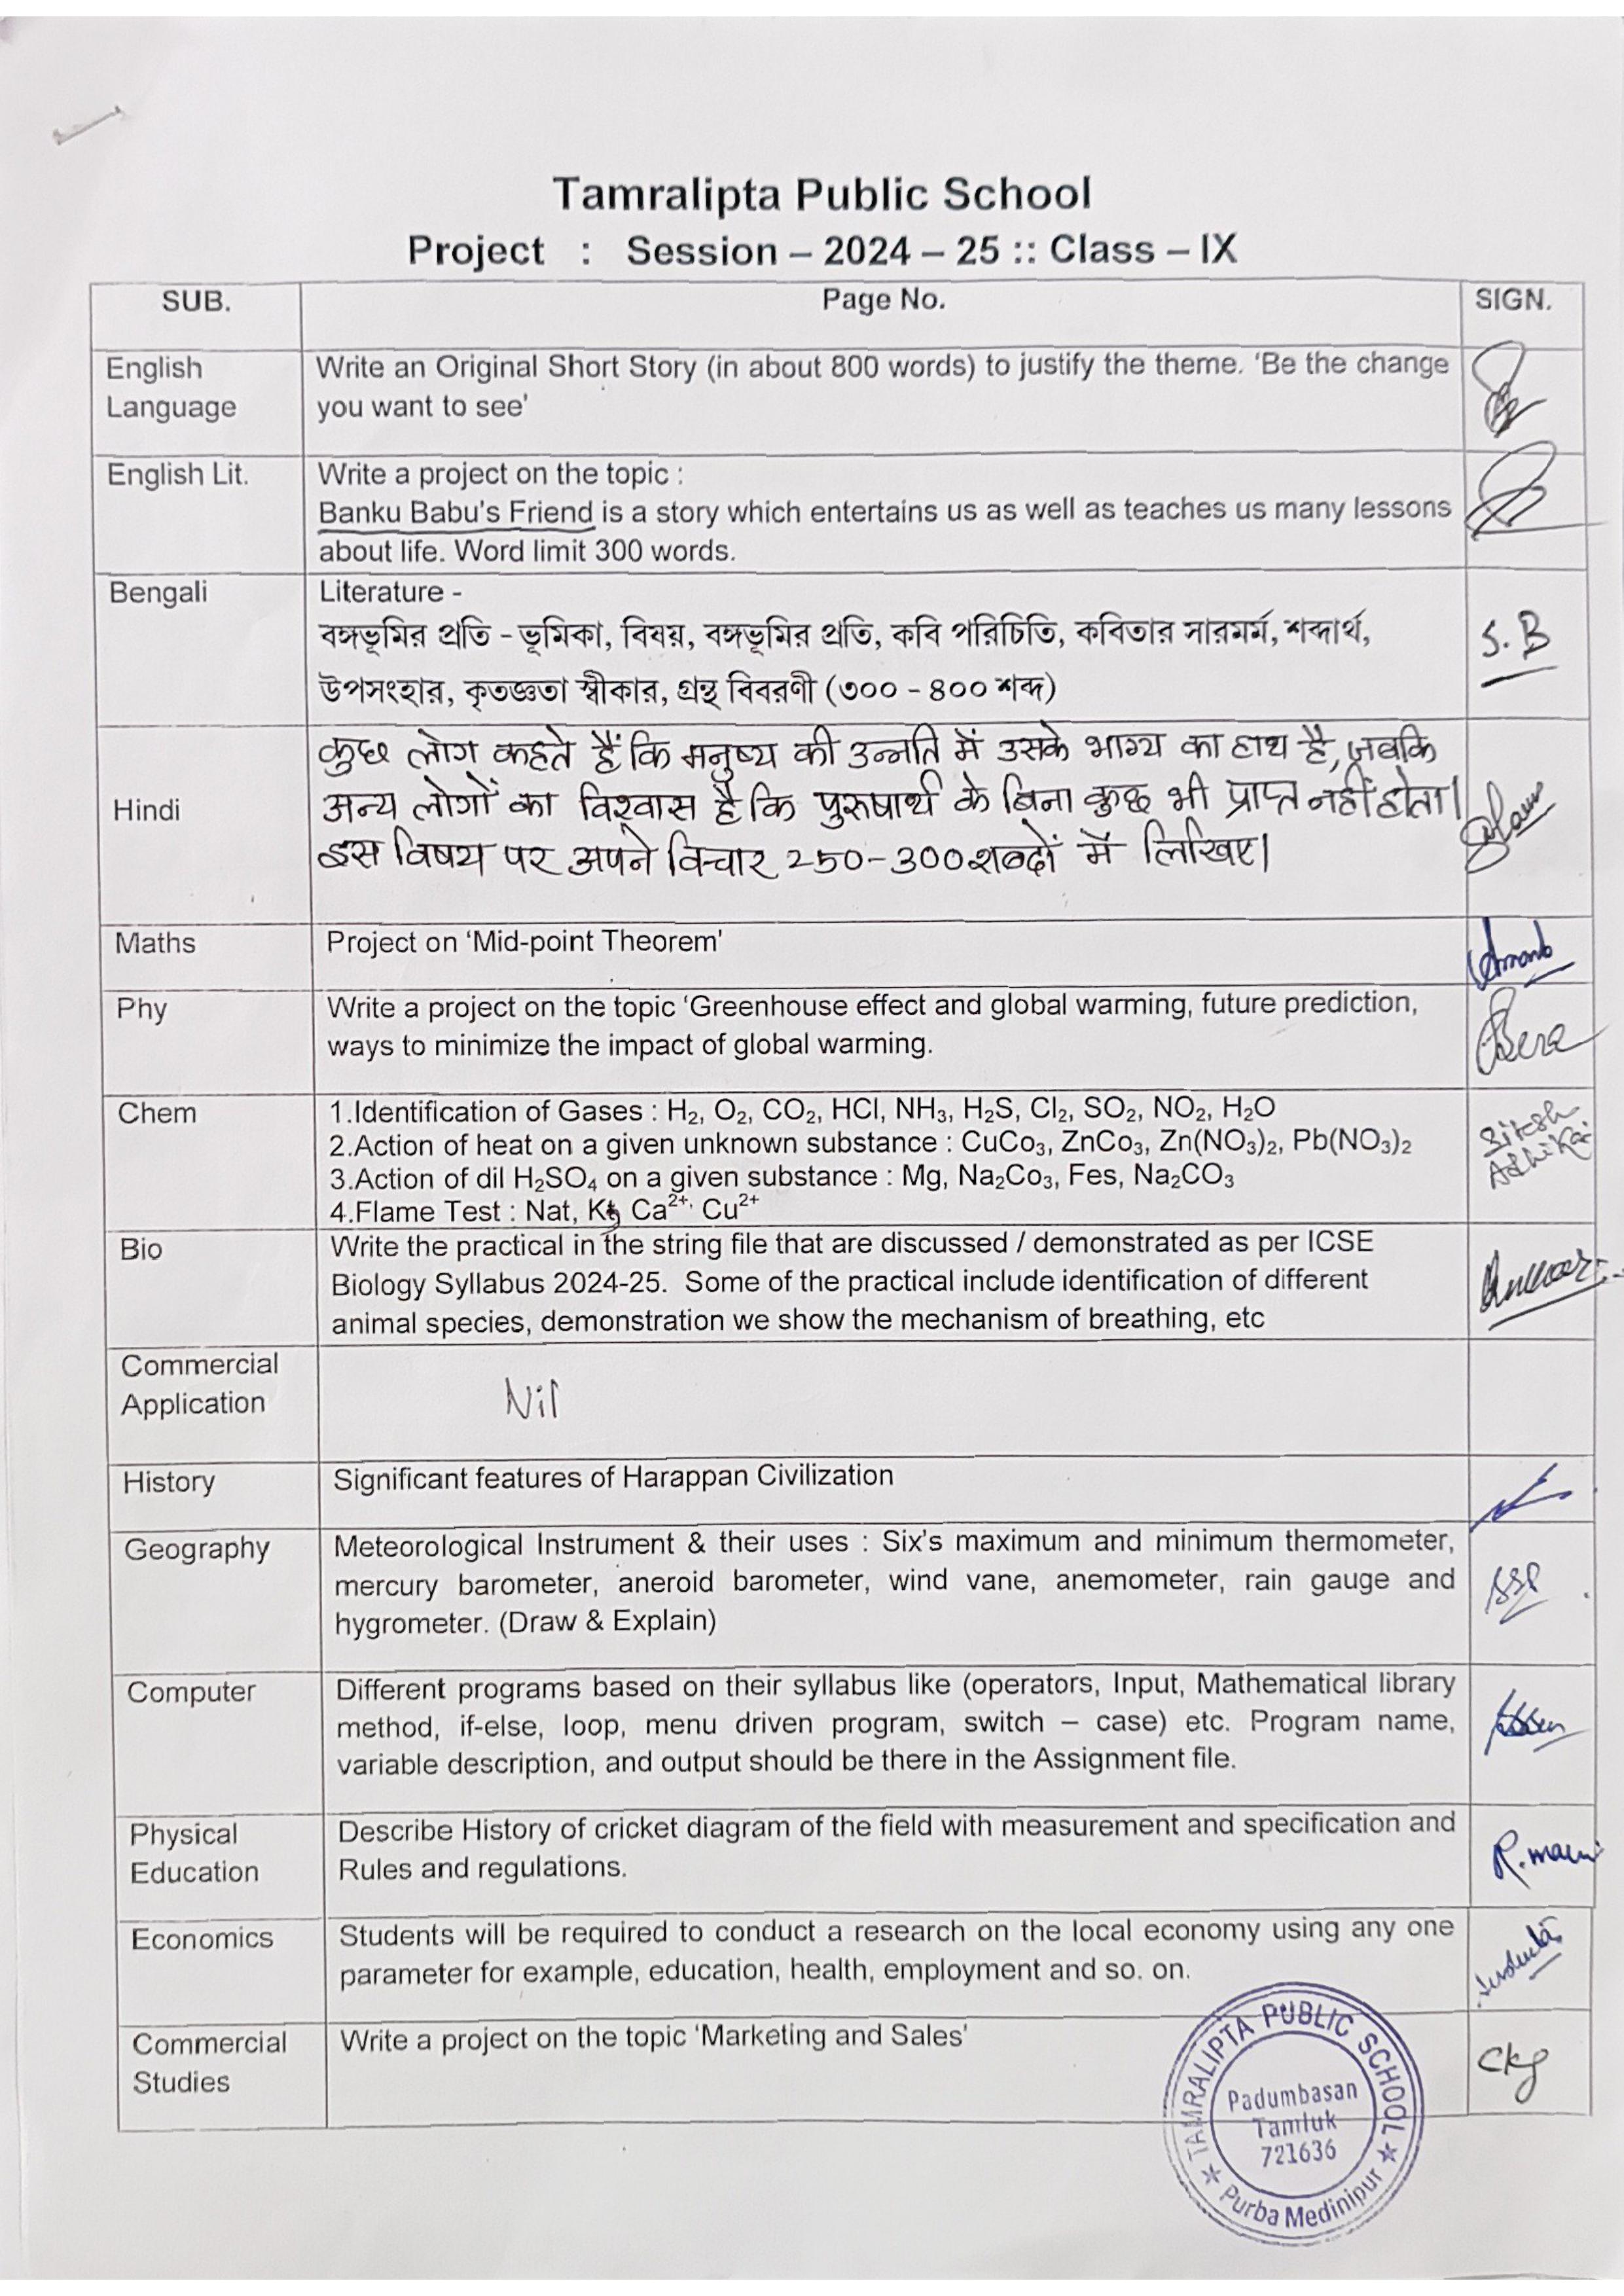 Tamralipta Public School
Project : Session – 2024 – 25 :: Class – IX
SUB. Page No. SIGN.
English Language
Write an Original Short Story (in about 800 words) to justify the theme. ‘Be the change
you want to see’
English Lit.
Write a project on the topic :
Banku Babu's Friend is a story which entertains us as well as teaches us many lessons
about life. Word limit 300 words.
Bengali
Literature -
বঙ্গভূমির প্রতি - ভূমিকা, বিষয়, বঙ্গভূমির প্রতি, কবি পরিচিতি, কবিতার সারমর্ম, শব্দার্থ,
উপসংহার, কৃতজ্ঞতা স্বীকার, গ্রন্থ বিবরণী (৩০০ - ৪০০ শব্দ)
S. B
Hindi
कुछ लोग कहते हैं कि मनुष्य की उन्नति में उसके भाग्य का हाथ है, जबकि
अन्य लोगों का विश्वास है कि पुरुषार्थ के बिना कुछ भी प्राप्त नहीं होता।
इस विषय पर अपने विचार 250-300 शब्दों में लिखिए।
Maths
Project on ‘Mid-point Theorem’
Phy
Write a project on the topic ‘Greenhouse effect and global warming, future prediction,
ways to minimize the impact of global warming.
Bera
Chem
1.Identification of Gases : H₂, O₂, CO₂, HCl, NH₃, H₂S, Cl₂, SO₂, NO₂, H₂O
2.Action of heat on a given unknown substance : CuCo₃, ZnCo₃, Zn(NO₃)₂, Pb(NO₃)₂
3.Action of dil H₂SO₄ on a given substance : Mg, Na₂Co₃, Fes, Na₂CO₃
4.Flame Test : Nat, Kt, Ca²⁺, Cu²⁺
Bio
Write the practical in the string file that are discussed / demonstrated as per ICSE
Biology Syllabus 2024-25. Some of the practical include identification of different
animal species, demonstration we show the mechanism of breathing, etc
Commercial
Application
Nil
History
Significant features of Harappan Civilization
Geography
Meteorological Instrument & their uses : Six's maximum and minimum thermometer,
mercury barometer, aneroid barometer, wind vane, anemometer, rain gauge and
hygrometer. (Draw & Explain)
SSP
Computer
Different programs based on their syllabus like (operators, Input, Mathematical library
method, if-else, loop, menu driven program, switch – case) etc. Program name,
variable description, and output should be there in the Assignment file.
Physical
Education
Describe History of cricket diagram of the field with measurement and specification and
Rules and regulations.
Economics
Students will be required to conduct a research on the local economy using any one
parameter for example, education, health, employment and so. on.
Commercial
Studies
Write a project on the topic ‘Marketing and Sales’
TAMRALIPTA PUBLIC SCHOOL
Padumbasan
Tamluk
721636
Purba Medinipur